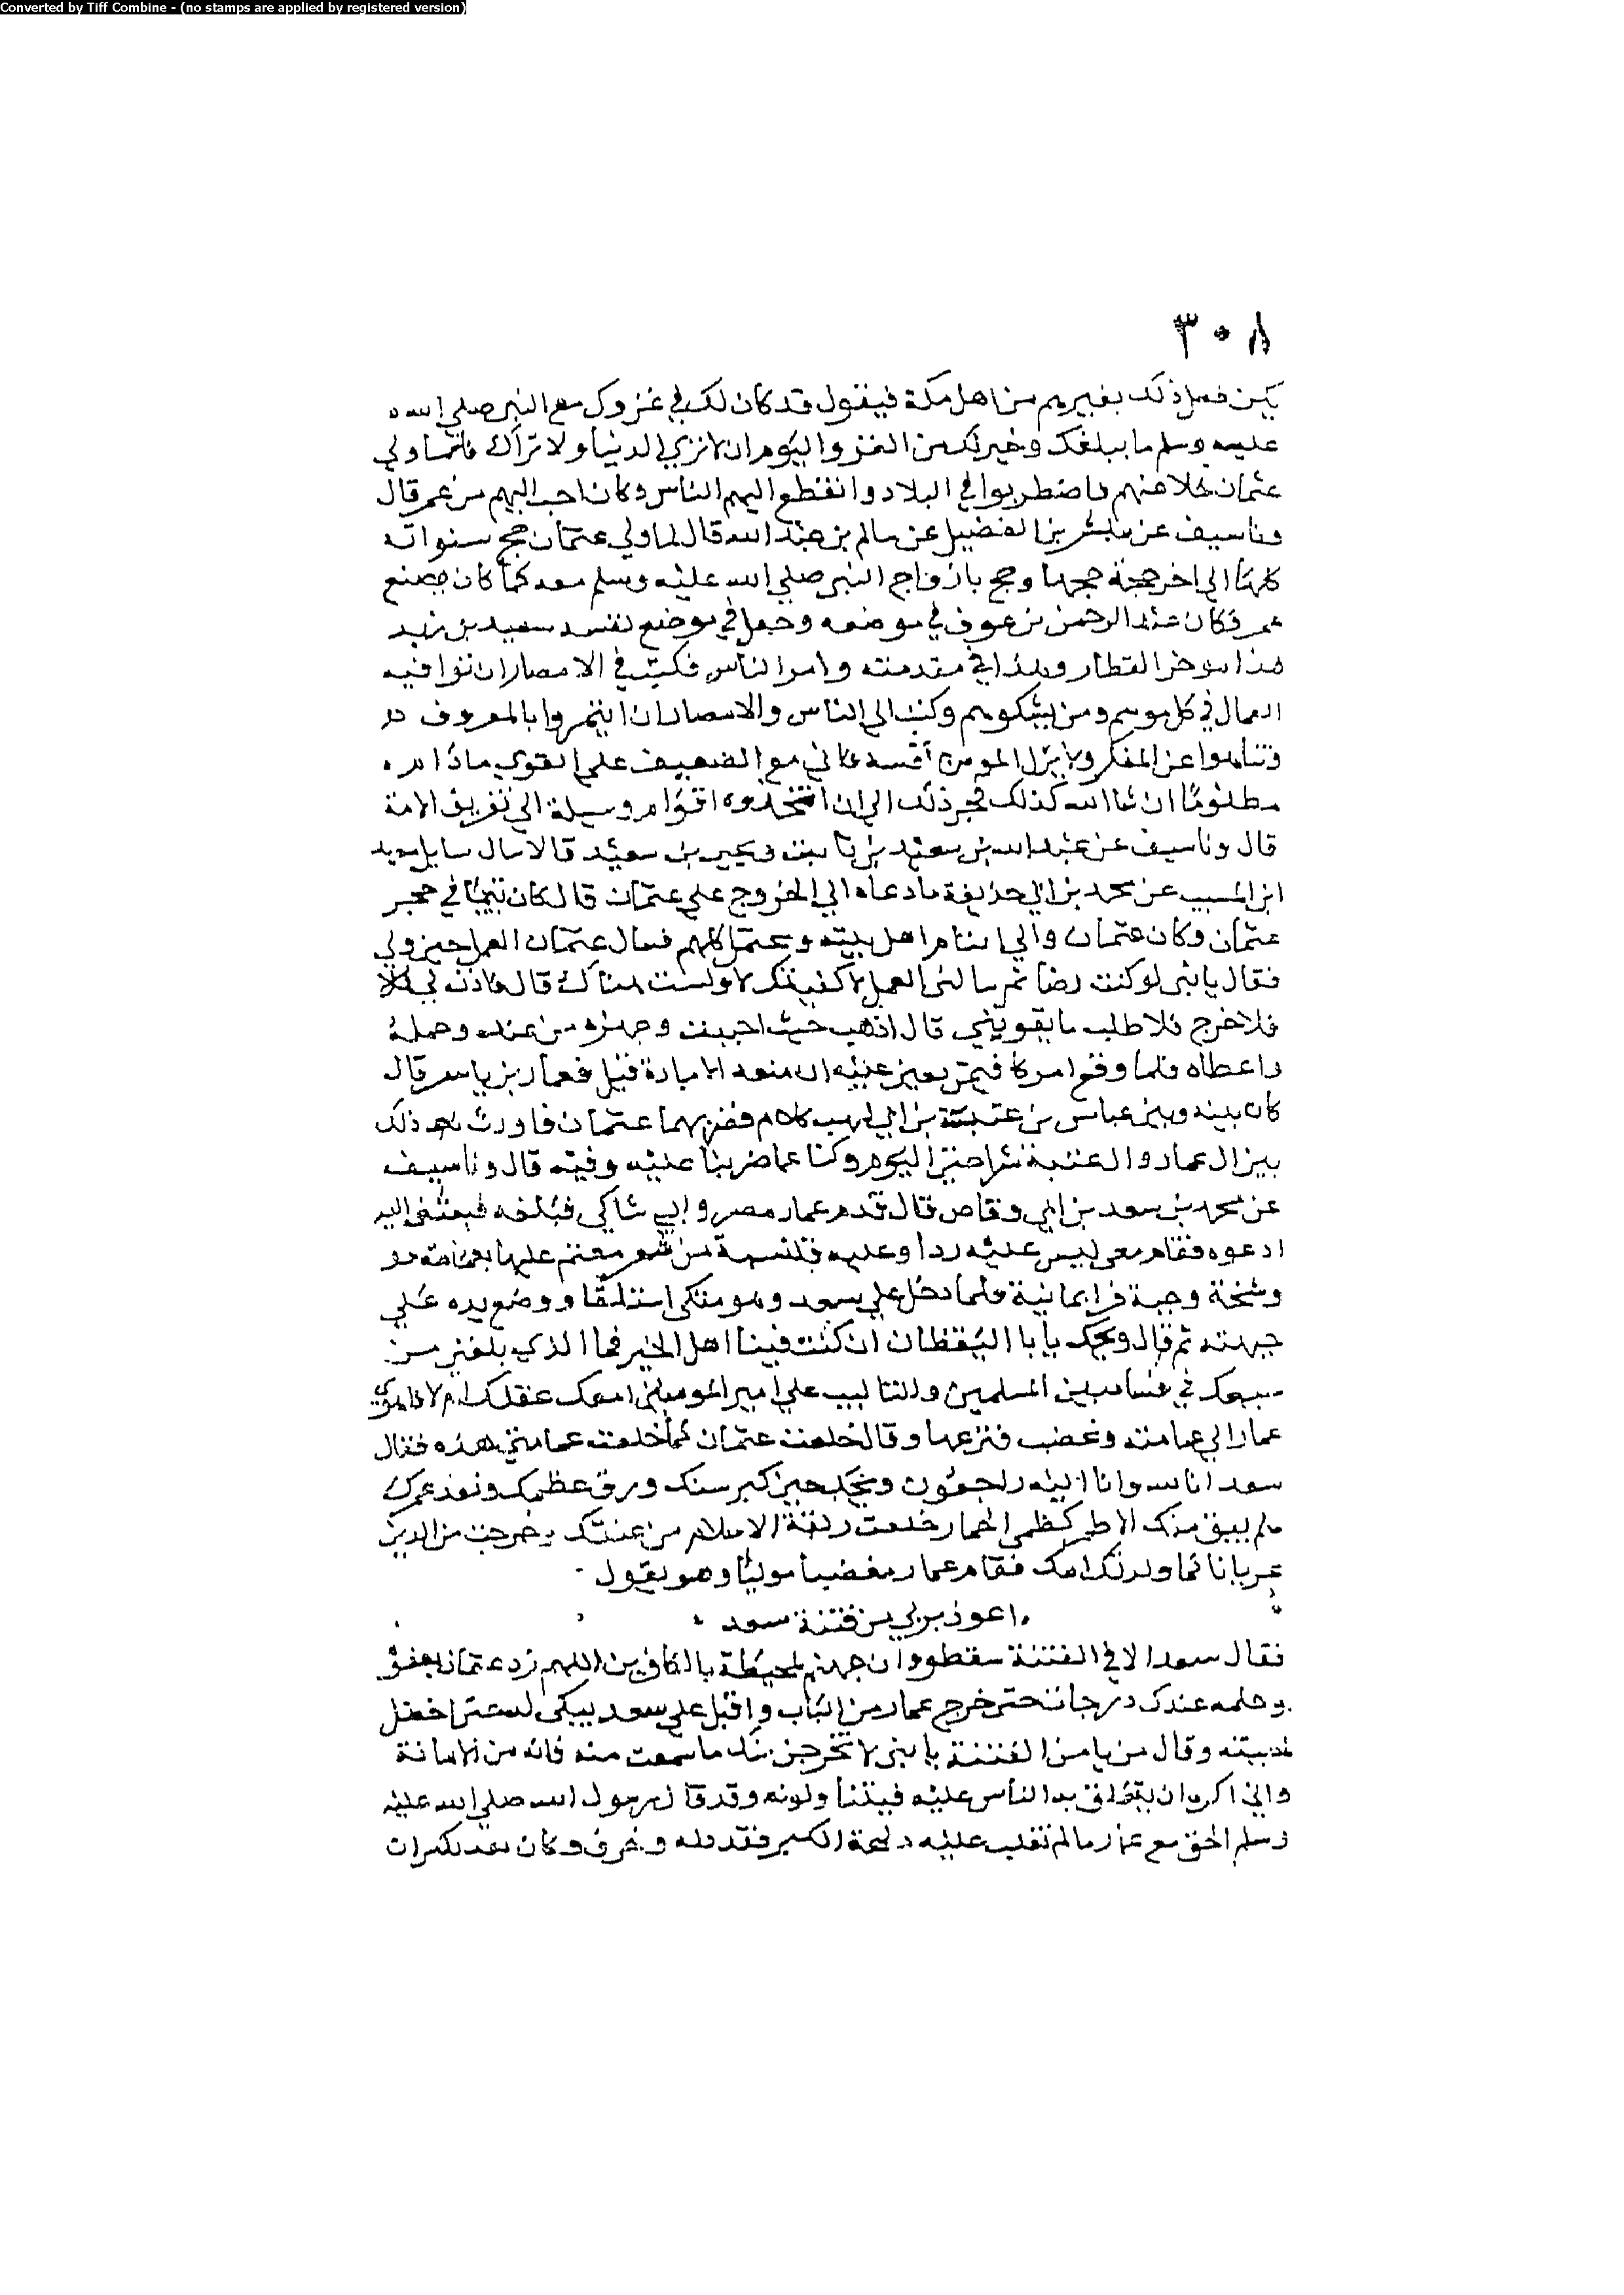 Converted by Tiff Combine - (no stamps are applied by registered version)
٣٠٨
يكن فعل ذلك بغيرهم من اهل مكة فيقول قد كان لك في غزوك مع النبي صلى الله
عليه وسلم ما يبلغك وخير لك من الغزو اليوم ان لا تري الدنيا ولا تراك فلما ولي
عثمان خلا عنهم فاضطربوا في البلاد وانقطع اليهم الناس وكان احب اليهم من عمر قال
وناسيف عن مبشر بن الفضيل عن سالم بن عبد الله قال لما ولي عثمان حج سنواته
كلها الي اخر حجة حجها وحج بازواج النبي صلي الله عليه وسلم معه كما كان يصنع
عمر فكان عبد الرحمن بن عوف في موضعه وجعل في موضع نفسه سعيد بن زيد
هذا موخر القطار وهذا في مقدمته وامر الناس فكتب في الامصار ان توافيه
العمال في كل موسم ومن يشكوهم وكتب الي الناس والامصار ان ايتمروا بالمعروف
وتناهوا عن المنكر ولا يذل المومن نفسه فاني مع الضعيف علي القوي ماذام
مظلوما ان شا الله كذلك فجر ذلك الي ان اتخذوه اقوام وسيلة الي تفريق الامة
قال وناسيف عن عبد الله بن سعيد بن ثابت ويحيى بن سعيد قالا سال سايل سعيد
ابن المسيب عن محمد بن ابي حذيفة مادعاه الي الخروج علي عثمان قال كان يتيما في حجر
عثمان وكان عثمان والي ايتام اهل بيته ومحتمل كلهم فسال عثمان العمل حين ولي
فقال يا بني لو كنت رضا ثم سالتني العمل لاستعملتك ولكن لست هناك قال فاذن لي
فلاخرج فلاطلب ما يقويني قال اذهب حيث احببت وجهزه من عنده وحمله
واعطاه فلما وقع امر كا فيمن تغير عليه ان منعه الامارة قيل فعمار بن ياسر قال
كان بينه وبين عباس بن عتبة بن ابي لهب كلام فضربهما عثمان فاورث بعد ذلك
بين ال عمار وال عتبة شرا حتى اليوم وكنا عما ضربنا عليه وفيه قال وناسيف
عن محمد بن سعد بن ابي وقاص قال قدم عمار مصر وابي شاكي فبلغه فبعثني اليه
ادعوه فقام معي ليس عليه ردا وعليه قلنسية من شعر معتم عليها بعمامة
وسخة وجبة فرا يمانية فلما دخل علي سعد وهو متكي استلقا ووضع يده علي
جبهته ثم قال ويحك يا با اليقظان ان كنت فينا اهل الخير فما الذي بلغني من
سعيك في فساد بين المسلمين والتاليب علي امير المومنين امعك عقلك ام لا فاهوي
عمار الي عمامته وغضب فنزعها وقال خلعت عثمان كما خلعت عمامتي هذه فقال
سعد انا لله وانا اليه راجعون ويحك حين كبر سنك ورق عظمك ونفد عمرك
فلم يبق منك الا ظم كظم الحمار خلعت ربقة الاسلام من عنقك وخرجت من الدين
عريانا كما ولدتك امك فقام عمار مغضبا موليا وهو يقول
اعوذ بربي من فتنة سعد
فقال سعد الا في الفتنة سقطوا وان جهنم لمحيطة بالكافرين اللهم زد عثمان بعفو
وحلمه عندك درجات حتى خرج عمار من الباب واقبل علي سعد يبكي له حتى اخضل
لحيته وقال من يامن الفتنة يا بني لا تخرجن منك ما سمعت منه فانه من الامانة
واني اكره ان يتعلق به الناس عليه فيتناولونه وقد قال رسول الله صلي الله عليه
وسلم الحق مع عمار ما لم تغلب عليه دلهة الكبر فقد دله وخرف وكان بعد بكرات